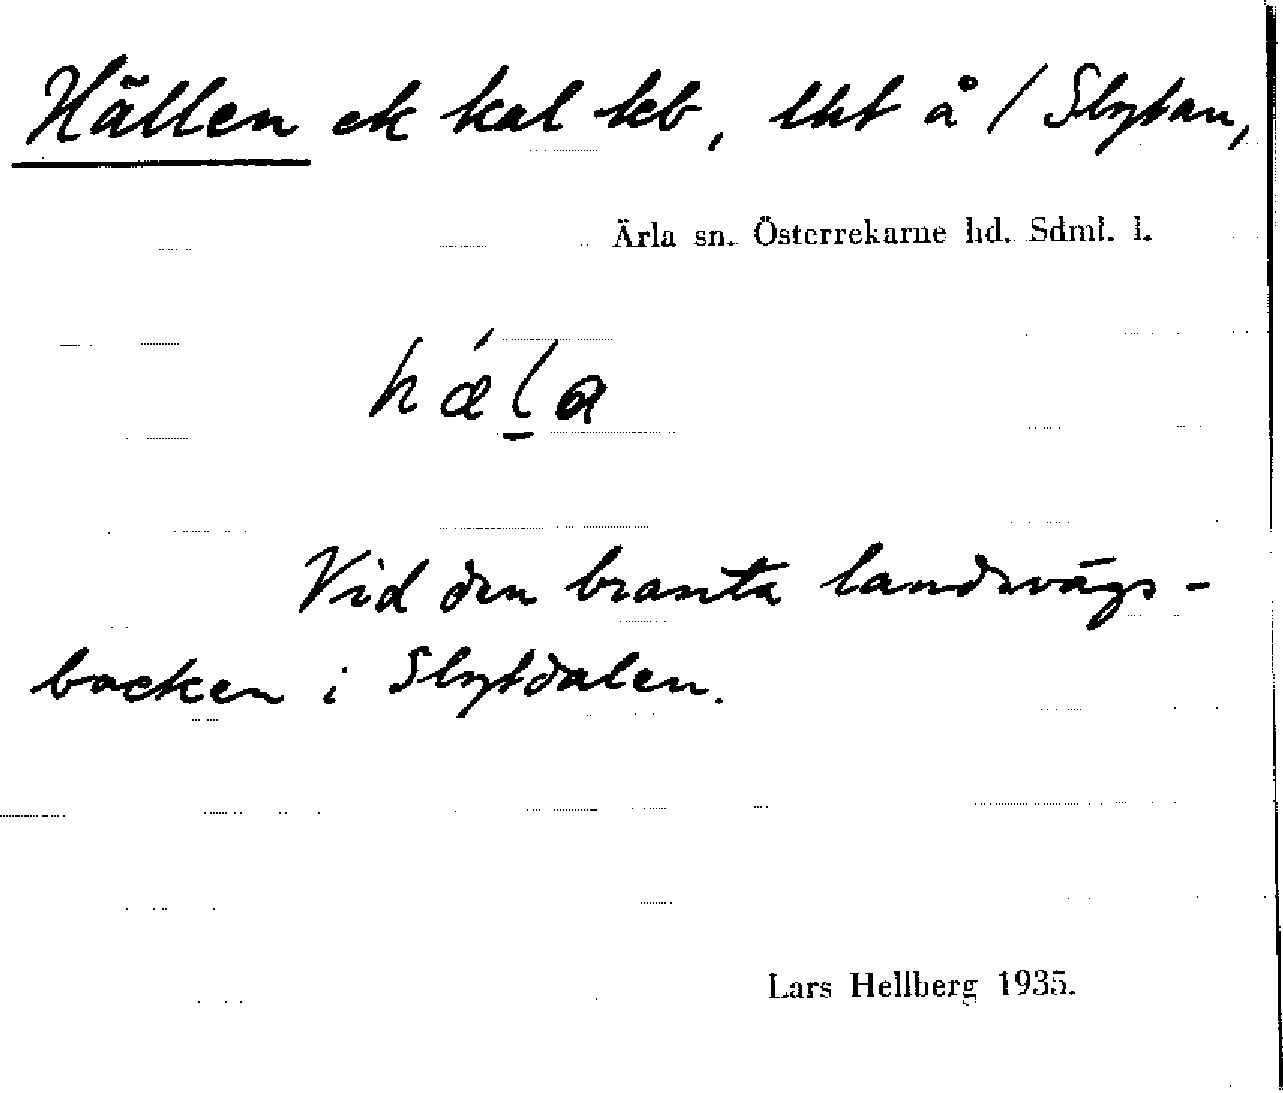 Hällen ek kal kb, lht å / Slytan,
Ärla sn. Österrekarne hd. Sdml. l.
hǽl̲a
Vid den branta landsvägs-
backen i Slytdalen.
Lars Hellberg 1935.